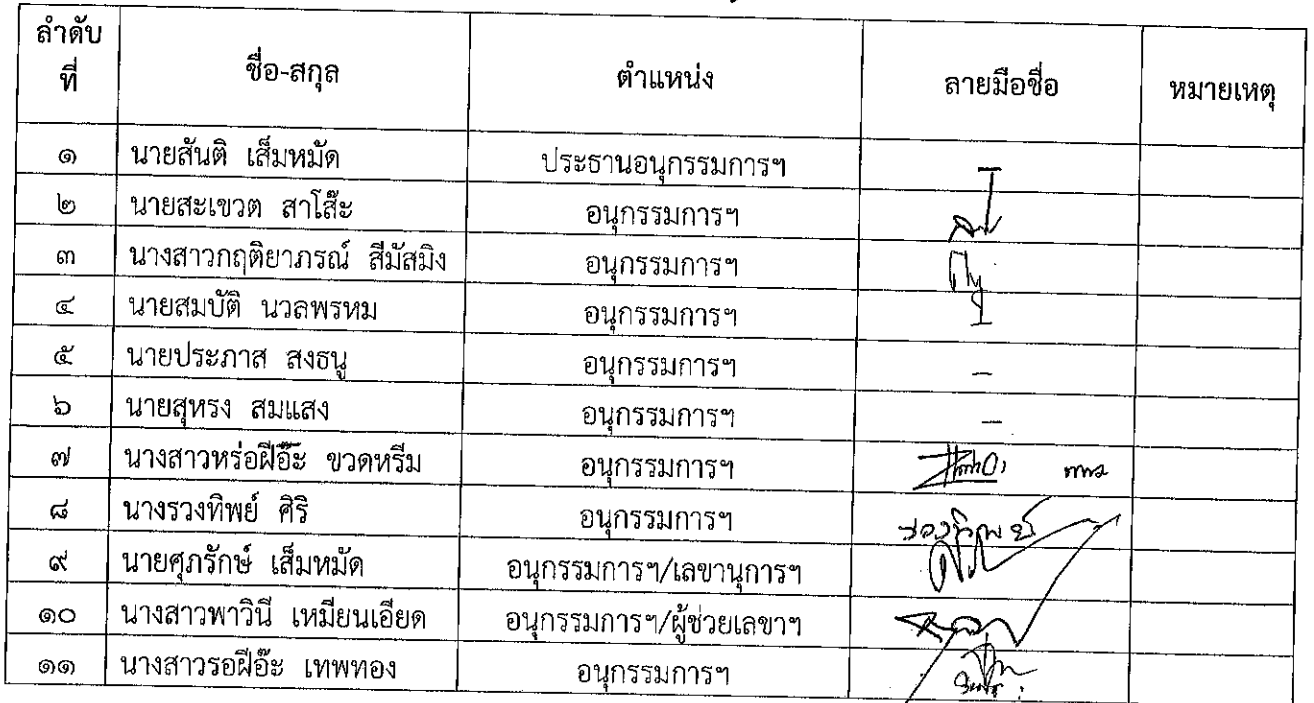 ลำดับที่ ชื่อ-สกุล ตำแหน่ง ลายมือชื่อ หมายเหตุ
๑ นายสันติ เส็มหมัด ประธานอนุกรรมการฯ
๒ นายสะเขวต สาโส๊ะ อนุกรรมการฯ
๓ นางสาวกฤติยาภรณ์ สีมัสมิง อนุกรรมการฯ
๔ นายสมบัติ นวลพรหม อนุกรรมการฯ
๕ นายประภาส สงธนู อนุกรรมการฯ -
๖ นายสุหรง สมแสง อนุกรรมการฯ -
๗ นางสาวหร่อฝีอ๊ะ ขวดหรีม อนุกรรมการฯ
๘ นางรวงทิพย์ ศิริ อนุกรรมการฯ รวงทิพย์
๙ นายศุภรักษ์ เส็มหมัด อนุกรรมการฯ/เลขานุการฯ
๑๐ นางสาวพาวินี เหมียนเอียด อนุกรรมการฯ/ผู้ช่วยเลขาฯ
๑๑ นางสาวรอฝีอ๊ะ เทพทอง อนุกรรมการฯ